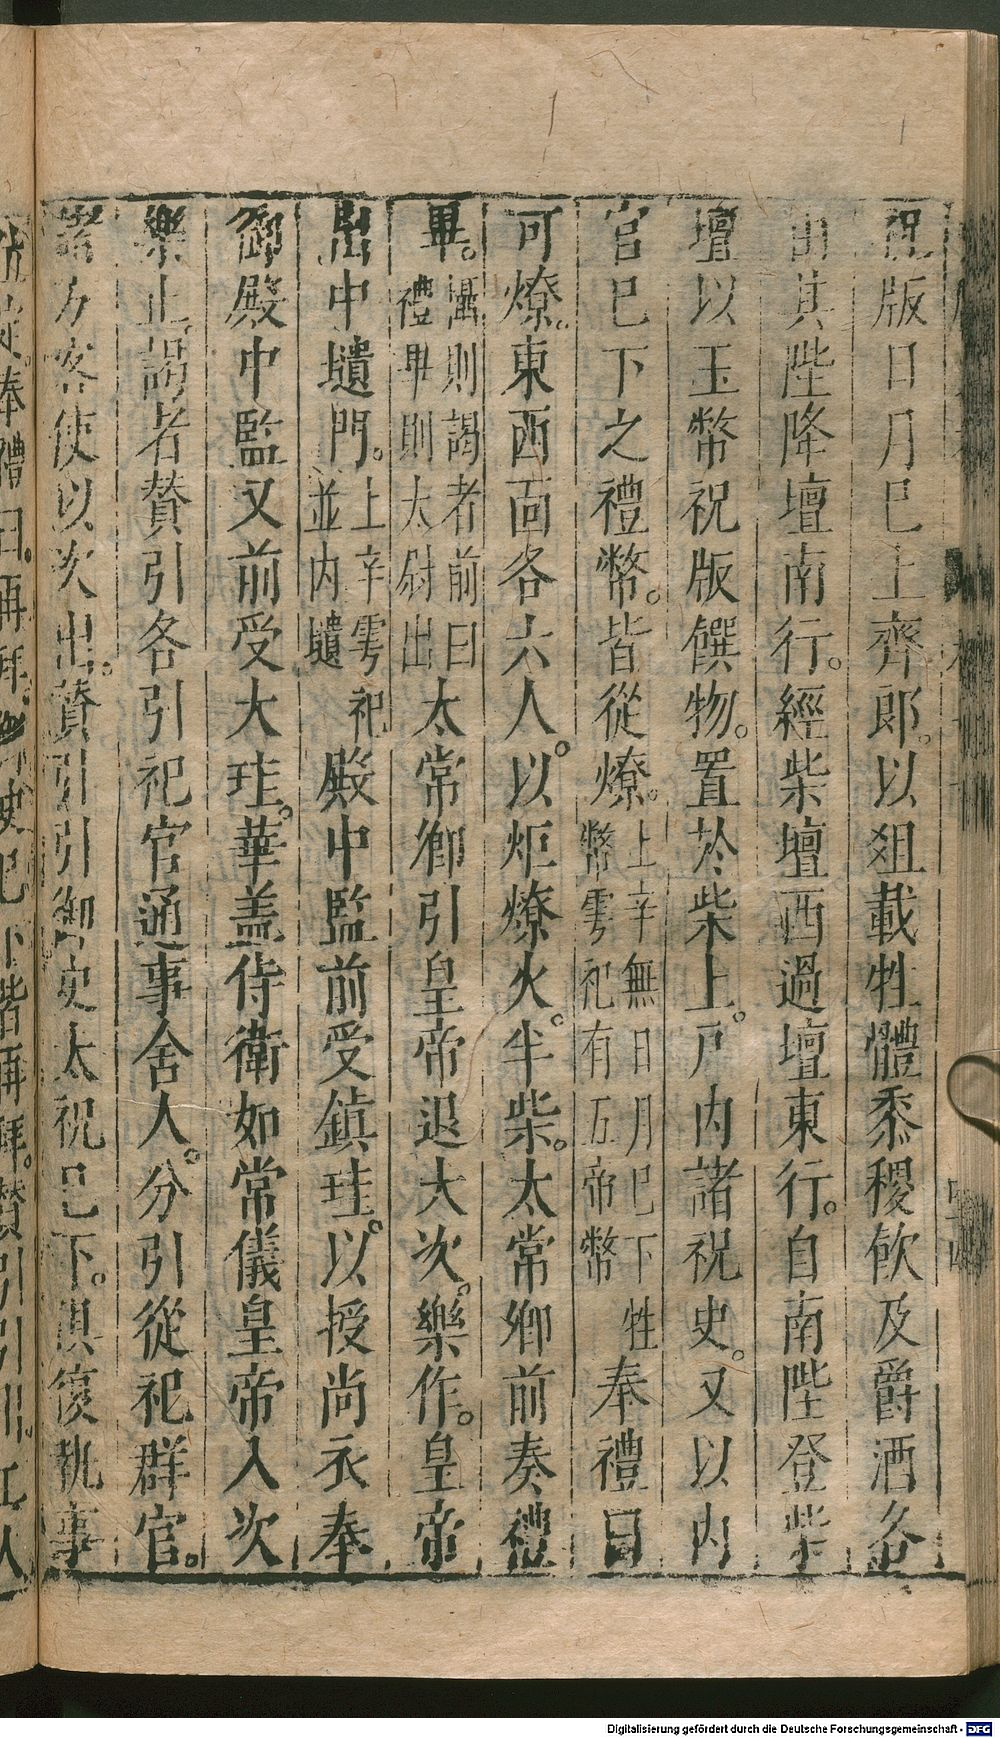 祝版日月巳上齊郎。以俎載牲體黍稷飲及爵酒各
由其陛降壇南行。經柴壇西過壇東行。自南陛登柴
壇以玉幣祝版饌物。置於柴上。戸内諸祝史。又以内
官巳下之禮幣。皆從燎。上辛無日月巳下牲幣雩祀有五帝幣奉禮曰
可燎。東西面各六人。以炬燎火。半柴。太常卿前奏禮
畢。攝則謁者前曰禮畢則太尉出太常卿引皇帝退大次。樂作。皇帝
出中壝門。上辛雩祀並内壝殿中監前受鎮珪。以授尚衣奉
御殿中監又前受大珪。華盖侍衛如常儀皇帝入次
樂止謁者贊引各引祀官通事舍人。分引從祀群官。
諸方客使以次出。贊引引御史太祝巳下。俱復執事
Digitalisierung gefördert durch die Deutsche Forschungsgemeinschaft - DFG